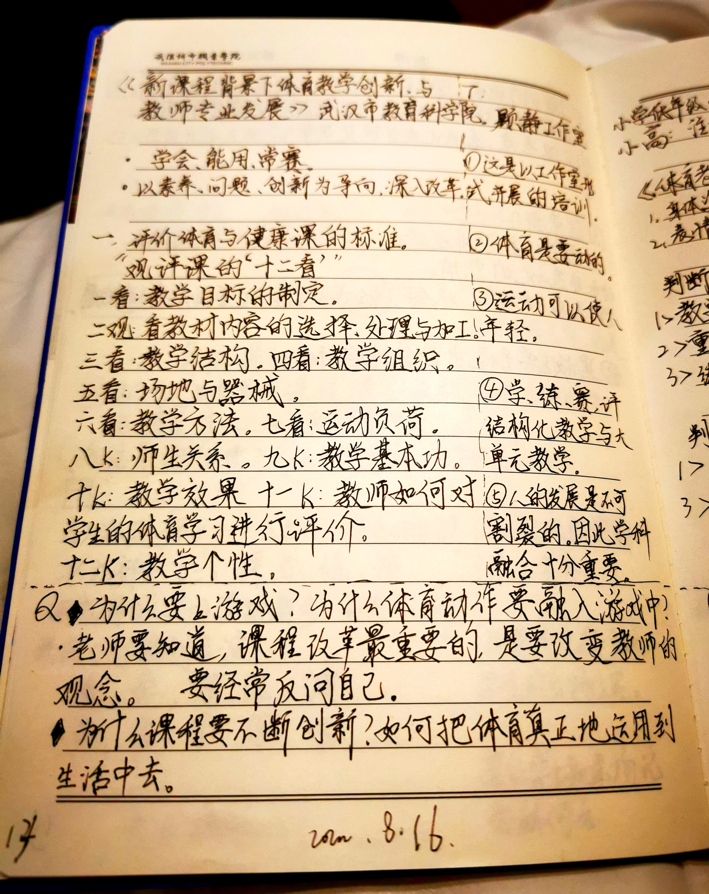 《新课程背景下体育教学创新与
教师专业发展》武汉市教育科学院、顾静工作室
· 学会、能用、常赛
· 以素养、问题、创新为导向,深入改革。
一、评价体育与健康课的标准。
“观评课的“十二看””
一看:教学目标的制定。
二观:看教材内容的选择、处理与加工。
三看:教学结构。四看:教学组织。
五看:场地与器械。
六看:教学方法。七看:运动负荷。
八K:师生关系。九K:教学基本功。
十K:教学效果 十一K:教师如何对
学生的体育学习进行评价。
十二K:教学个性。
①这是以工作室形
式开展的培训。
②体育是要动的。
③运动可以使人
年轻。
④学、练、赛、评
结构化教学与大
单元教学。
⑤人的发展是不可
割裂的。因此学科
融合十分重要。
Q ◆为什么要上游戏?为什么体育动作要融入游戏中?
·老师要知道,课程改革最重要的,是要改变教师的
观念。 要经常反问自己。
◆为什么课程要不断创新?如何把体育真正地运用到
生活中去。
8.16.
小学低年级
小高:
《体育老
1、身体
2、表情
判断
1>教学
2>重
3>
判
1>
3>